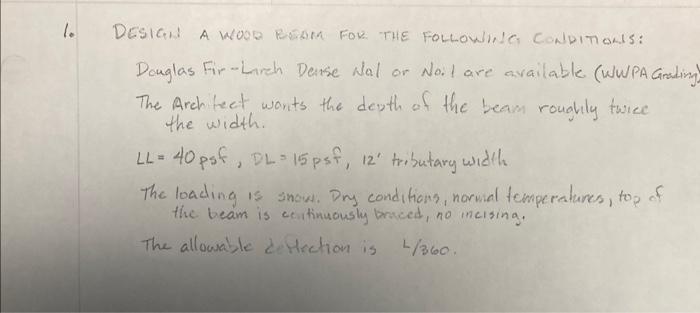 1. DESIGN A WOOD BEAM FOR THE FOLLOWING CONDITIONS:
Douglas Fir-Larch Dense No1 or No.1 are available (WWPA Grading)
The Architect wants the depth of the beam roughly twice
the width.
LL = 40 psf, DL = 15 psf, 12' tributary width
The loading is snow. Dry conditions, normal temperatures, top of
the beam is continuously braced, no incising.
The allowable deflection is L/360.